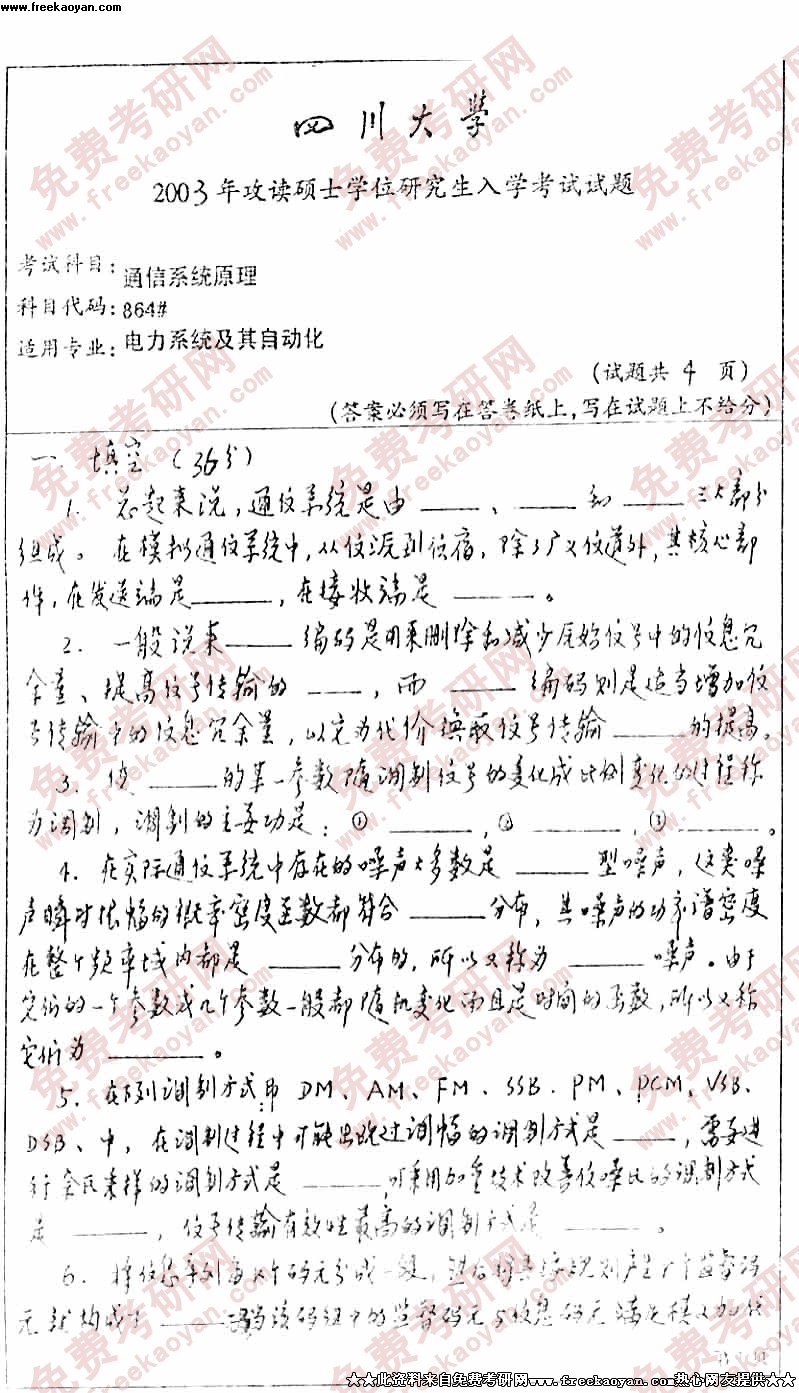 www.freekaoyan.com
四川大學
2003年攻读硕士学位研究生入学考试试题
考试科目：通信系统原理
科目代码：864#
适用专业：电力系统及其自动化
（试题共 4 页）
（答案必须写在答卷纸上，写在试题上不给分）
一. 填空（36分）
1. 总起来说，通信系统是由____、____和____三大部分
组成。在模拟通信系统中，从信源到信宿，除了广义信道外，其核心部
件，在发送端是____，在接收端是____。
2. 一般说来____编码是用来删除和减少原始信号中的信息冗
余量、提高信号传输的____，而____编码则是适当增加信
号传输中的信息冗余量，以此为代价换取信号传输____的提高。
3. 使____的某一参数随调制信号的变化成比例变化的过程称
为调制，调制的主要功是：①____，②____，③____。
4. 在实际通信系统中存在的噪声大多数是____型噪声，这类噪
声瞬时振幅的概率密度函数都符合____分布，其噪声的功率谱密度
在整个频率域内都是____分布的，所以又称为____噪声。由于
它们的一个参数或几个参数一般都随机变化而且是时间的函数，所以又称
它们为____。
5. 在下列调制方式即 DM、AM、FM、SSB、PM、PCM、VSB、
DSB、中，在调制过程中可能出现过调幅的调制方式是____，需要进
行金氏采样的调制方式是____，可采用加重技术改善信噪比的调制方式
是____，信号传输有效性最高的调制方式是____。
6. 将信息序列每k个码元分成一段，然后将其按规则产生r个监督码
元就构成了____当该码组中的监督码元与信息码元满足模2加的线
★★此资料来自免费考研网www.freekaoyan.com热心网友提供★★